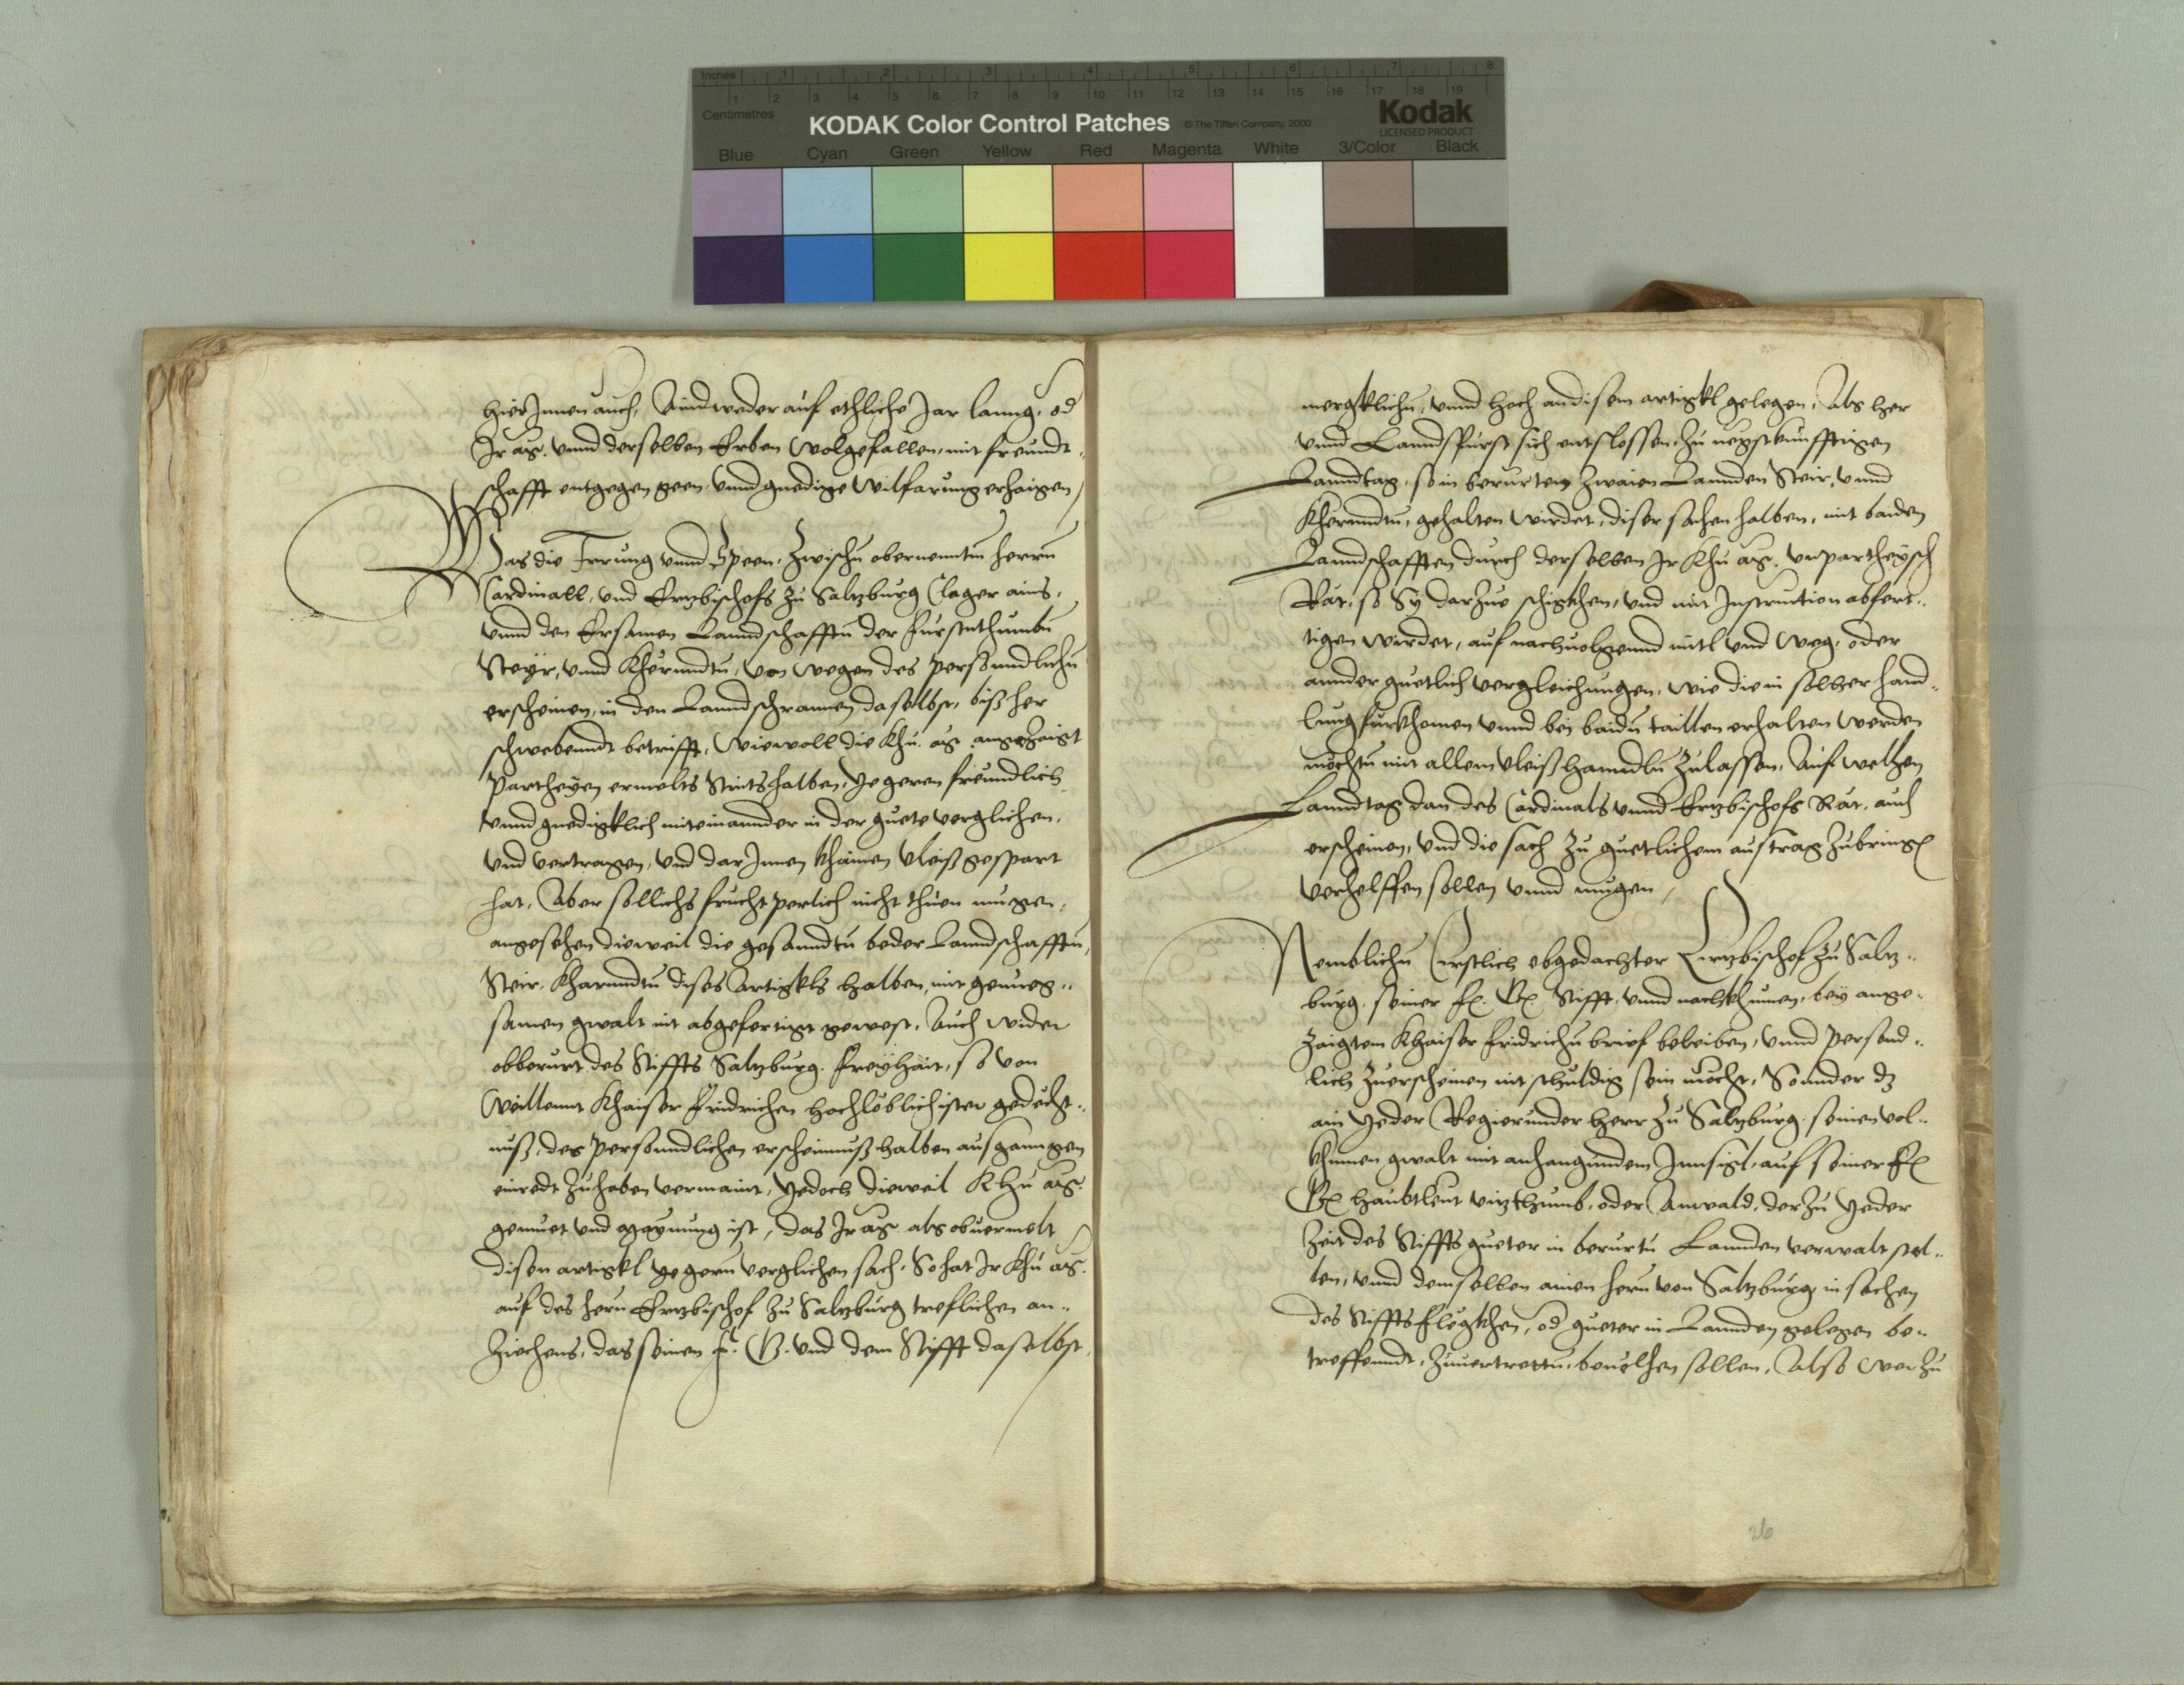 Inches 1 2 3 4 5 6 7 8
Centimetres 1 2 3 4 5 6 7 8 9 10 11 12 13 14 15 16 17 18 19
KODAK Color Control Patches © The Tiffen Company, 2000 Kodak
LICENSED PRODUCT
Blue Cyan Green Yellow Red Magenta White 3/Color Black
hierInnen auch, Aindweder auf ethliche Jar lanng, od
Ir Mt. vnnd derselben Erben wolgefallen, mit freundt
schafft entgegen geen vnnd gnedige wilfarung erzaigen /
Was die Irrung vnnd Speen, Zwischn obernenntn herrn
Cardinall, vnd Ertzbischofs zu Saltzburg Clager ains,
vnnd den Ersamen Lanndschafftn der furstnthumbn
Steyr, vnnd Kherndtn, von wegen des personndlichn
erscheinen, in den Lanndschrannen daselbst, bißher
schwebenndt betrifft, Wiewoll die Khu. Mt. angezaigt
Partheyen ermelts Stritshalben, yegeren freundlich
vnnd gnedigklich miteinannder in der guete verglichen,
vnd vertragen, vnd darInnen khainen vleiß gespart
hat, Aber sollichs fruchtperlich nicht thuen mugen,
angesehen dieweil die gesanndtn beder Lanndschafftn,
Steir, Kharnndtn dises Artigkls halben, mit genueg„
samen gwalt nit abgefertigt gewest, Auch wider
obberurt des Stiffts Saltzburg freyhait, so von
Weillennt Khaiser Fridrichen hochloblichister gedecht„
nuß, des personndlichen erscheinnuß halben ausganngen
einredt zuhaben vermaint, yedoch dieweil Khu Mt.
gemuet vnd maynung ist, das Ir Mt. als obuermelt
disen artigkl yegern verglichen sach, So hat Ir Khu Mt.
auf des herrn Ertzbischof zu Saltzburg treflichen an„
Ziechens, das seinen F. G. vnd dem Stifft daselbst
mergklichn, vnnd hoch an disem artigkl gelegen, Als her
vnnd Lanndsfurst sich entslossen, zu negstkunfftigen
Lanndtag, so in berurten zwaien Lannden Steir, vnnd
Kherndtn, gehalten wirdet, diser sachen halben, mit baiden
Lanndschafften durch derselben Ir Khu Mt. vnpartheysch
Rät, so Sy darzue schigkhen, vnd mit Instruction abfert„
tigen wirdet, auf nachuolgennd mitl vnd weg, oder
annder guetlich vergleichungen, wie die in solher hand„
lung furkhomen vnnd bei baidn taillen erhalten werden
mochtn mit allem vleiß hanndln zulassen, Auf welhen
Lanndtag dan des Cardinals vnnd Ertzbischofs Rät, auch
erscheinen, vnd die sach zu guetlichem austrag zubringen
verhelffen sollen vnnd mugen /
Nemblichn Erstlich obgedachter Ertzbischof zu Saltz„
burg, seiner F. G. Stifft, vnnd nachkhumen, bey ange„
zaigtem Khaiser Fridrichn brief beleiben, vnnd personnd„
lich zuerscheinen nit schuldig sein mocht, Sonnder dz
ain yeder Regierunder herr zu Saltzburg, seinen vol„
khumen gwalt mit anhangundem Innsigl, auf seiner F.
G. haubtleut vitzthumb, oder Anwald, der zu yeder
Zeit des Stiffts gueter in berurtn Lannden verwalt stel„
len, vnnd demselben ainen herrn von Saltzburg in sachen
des Stiffts flegkhen, od gueter in Lannden gelegen be„
treffenndt, zuuertrettn, beuelhen sollen, Also wer zu
26